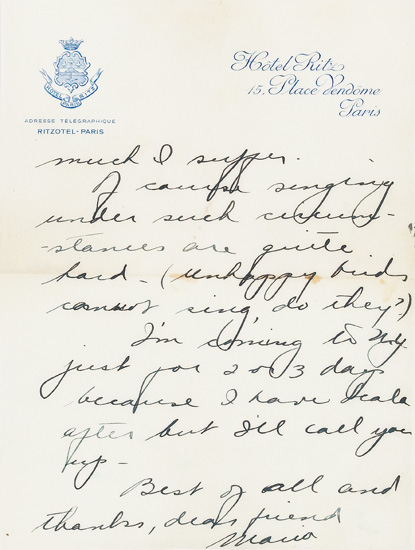 HOTEL RITZ
PARIS
ADRESSE TÉLÉGRAPHIQUE
RITZOTEL-PARIS
Hôtel Ritz
15, Place Vendôme
Paris
much I suffer.
Of course singing
under such circum-
-stances are quite
hard - (unhappy birds
cannot sing, do they?)
I'm coming to N.Y.
just for 2 or 3 days
because I have Scala
after but I'll call you
up -
Best of all and
thanks, dear friend
Maria